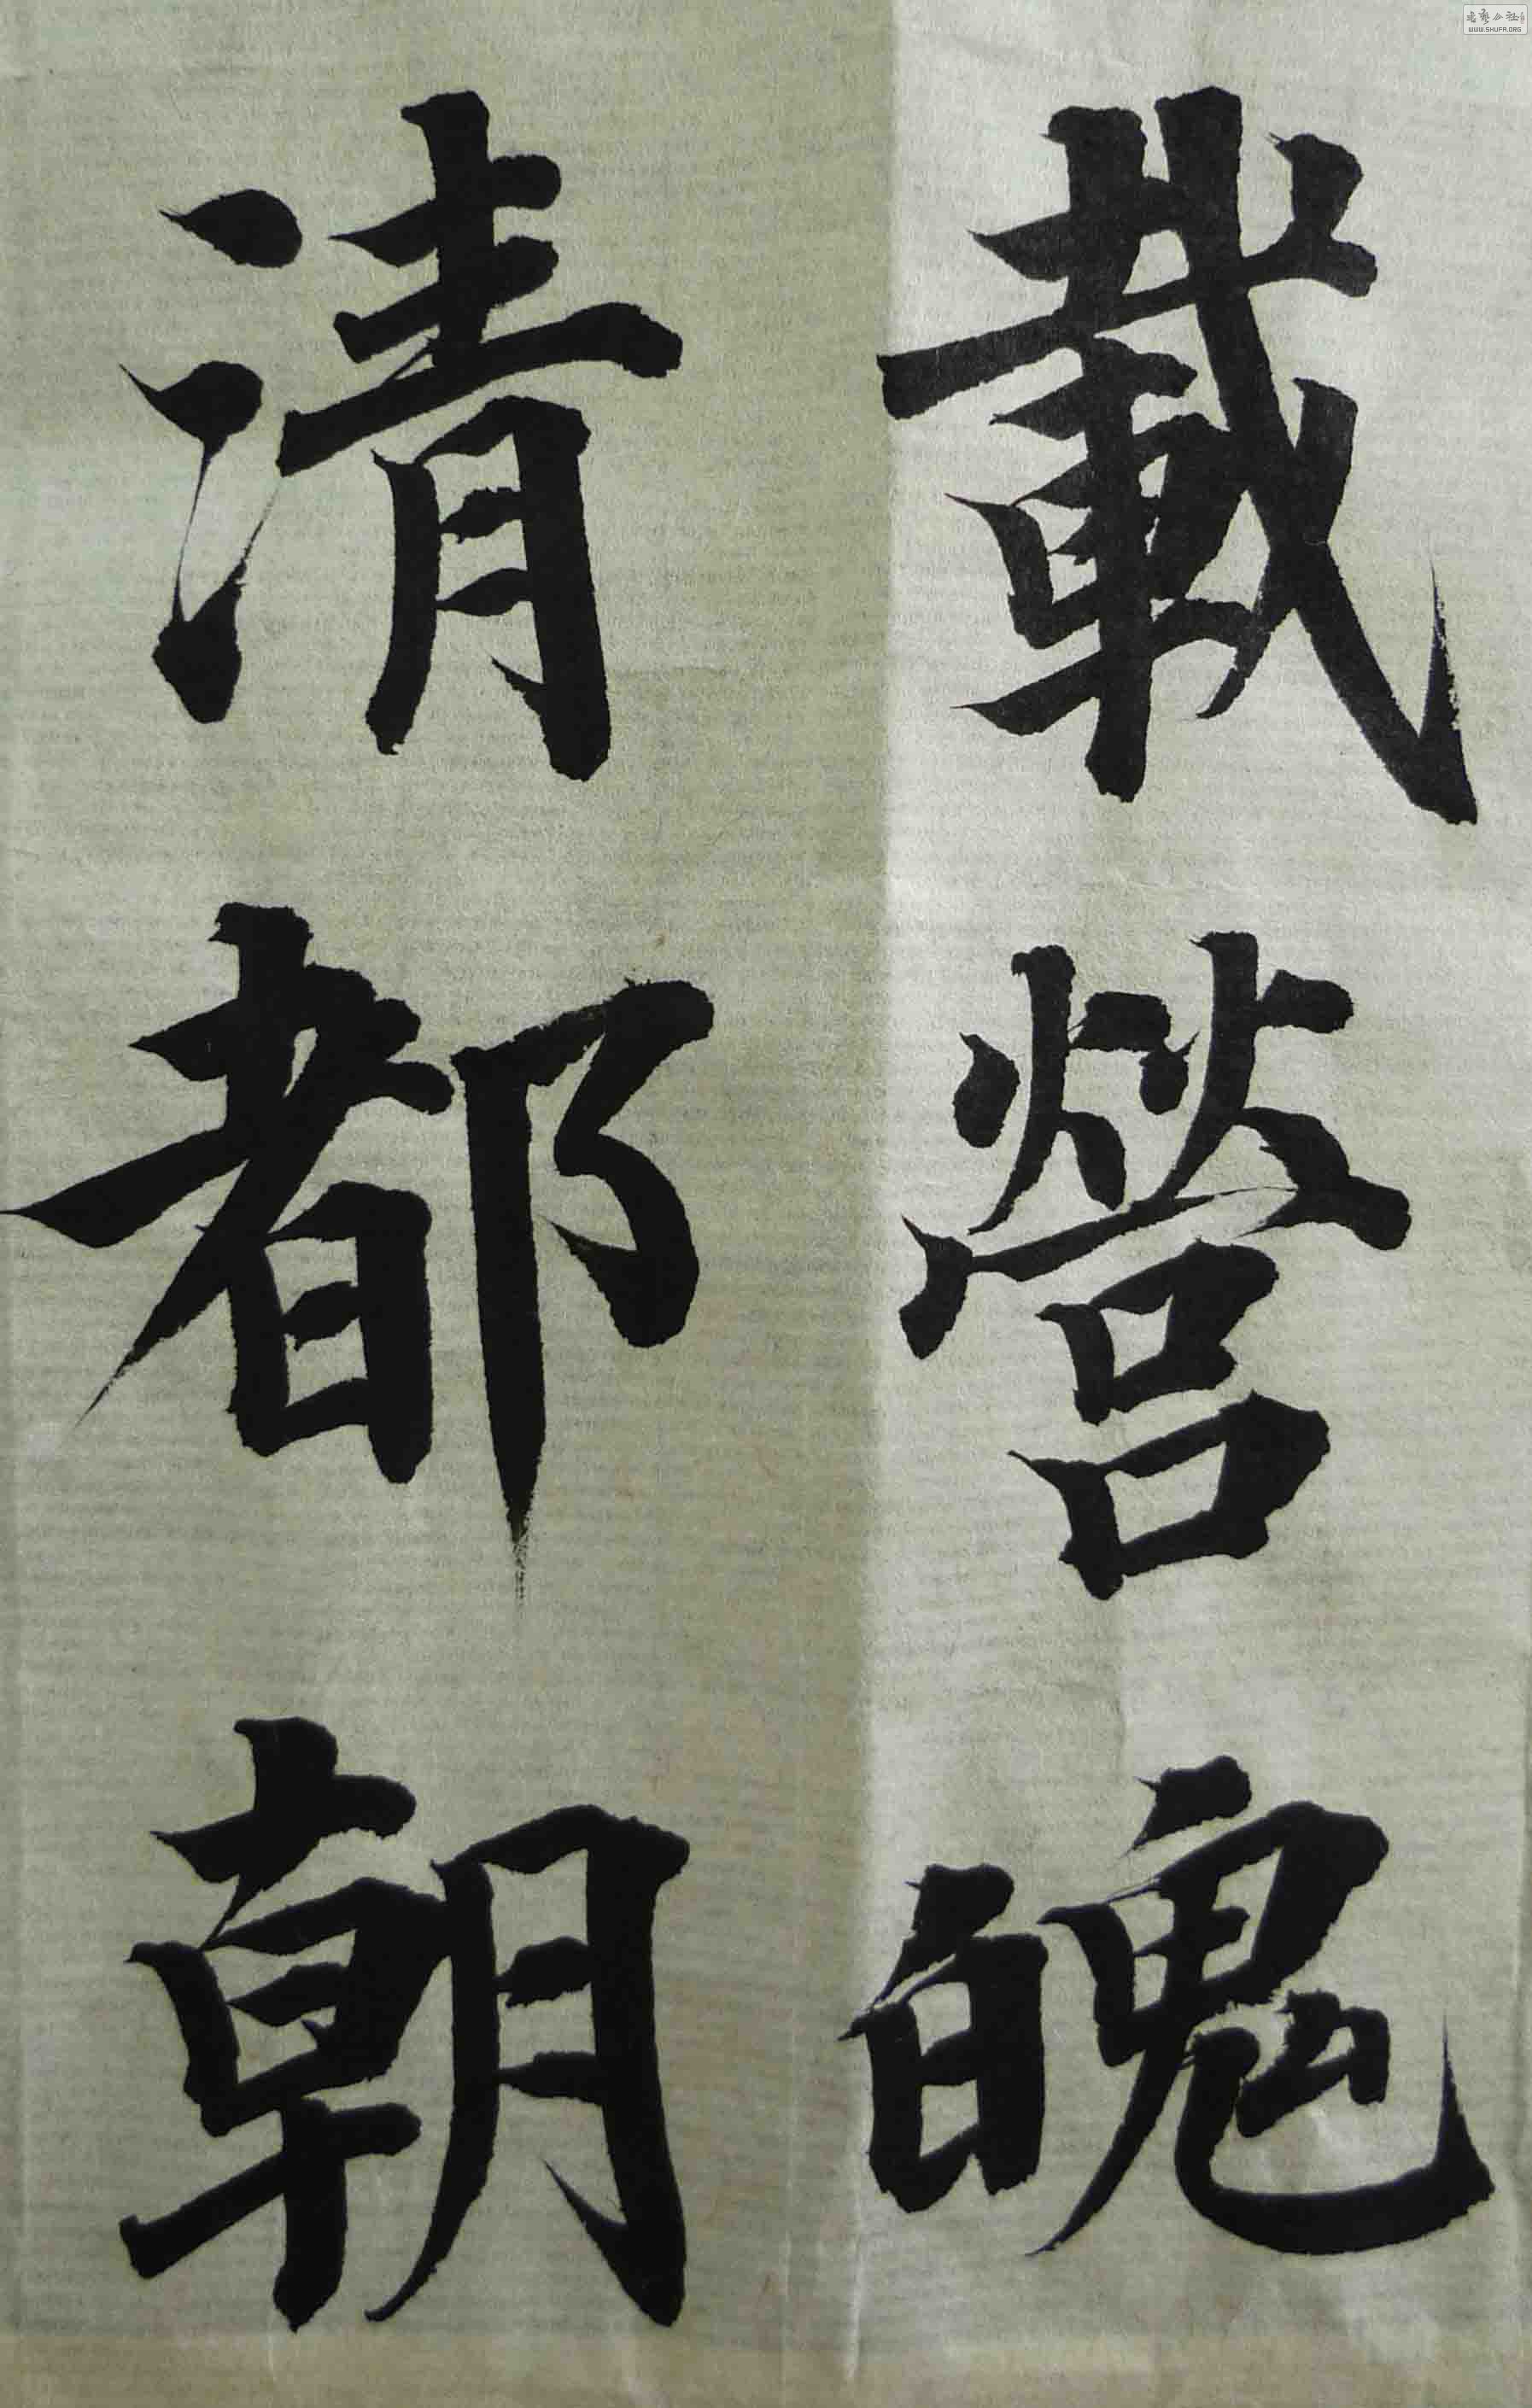 載營魄
清都朝
WWW.SHUFA.ORG